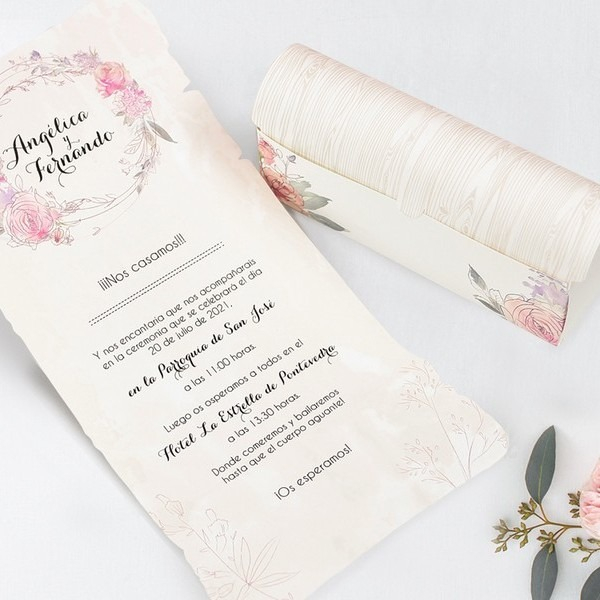 Angélica
y
Fernando
¡¡¡Nos casamos!!!
Y nos encantaría que nos acompañarais
en la ceremonia que se celebrará el día
20 de julio de 2021,
en la Parroquia de San José
a las 11.00 horas.
Luego os esperamos a todos en el
Hotel La Estrella de Pontevedra
a las 13.30 horas.
Donde comeremos y bailaremos
hasta que el cuerpo aguante!
¡Os esperamos!